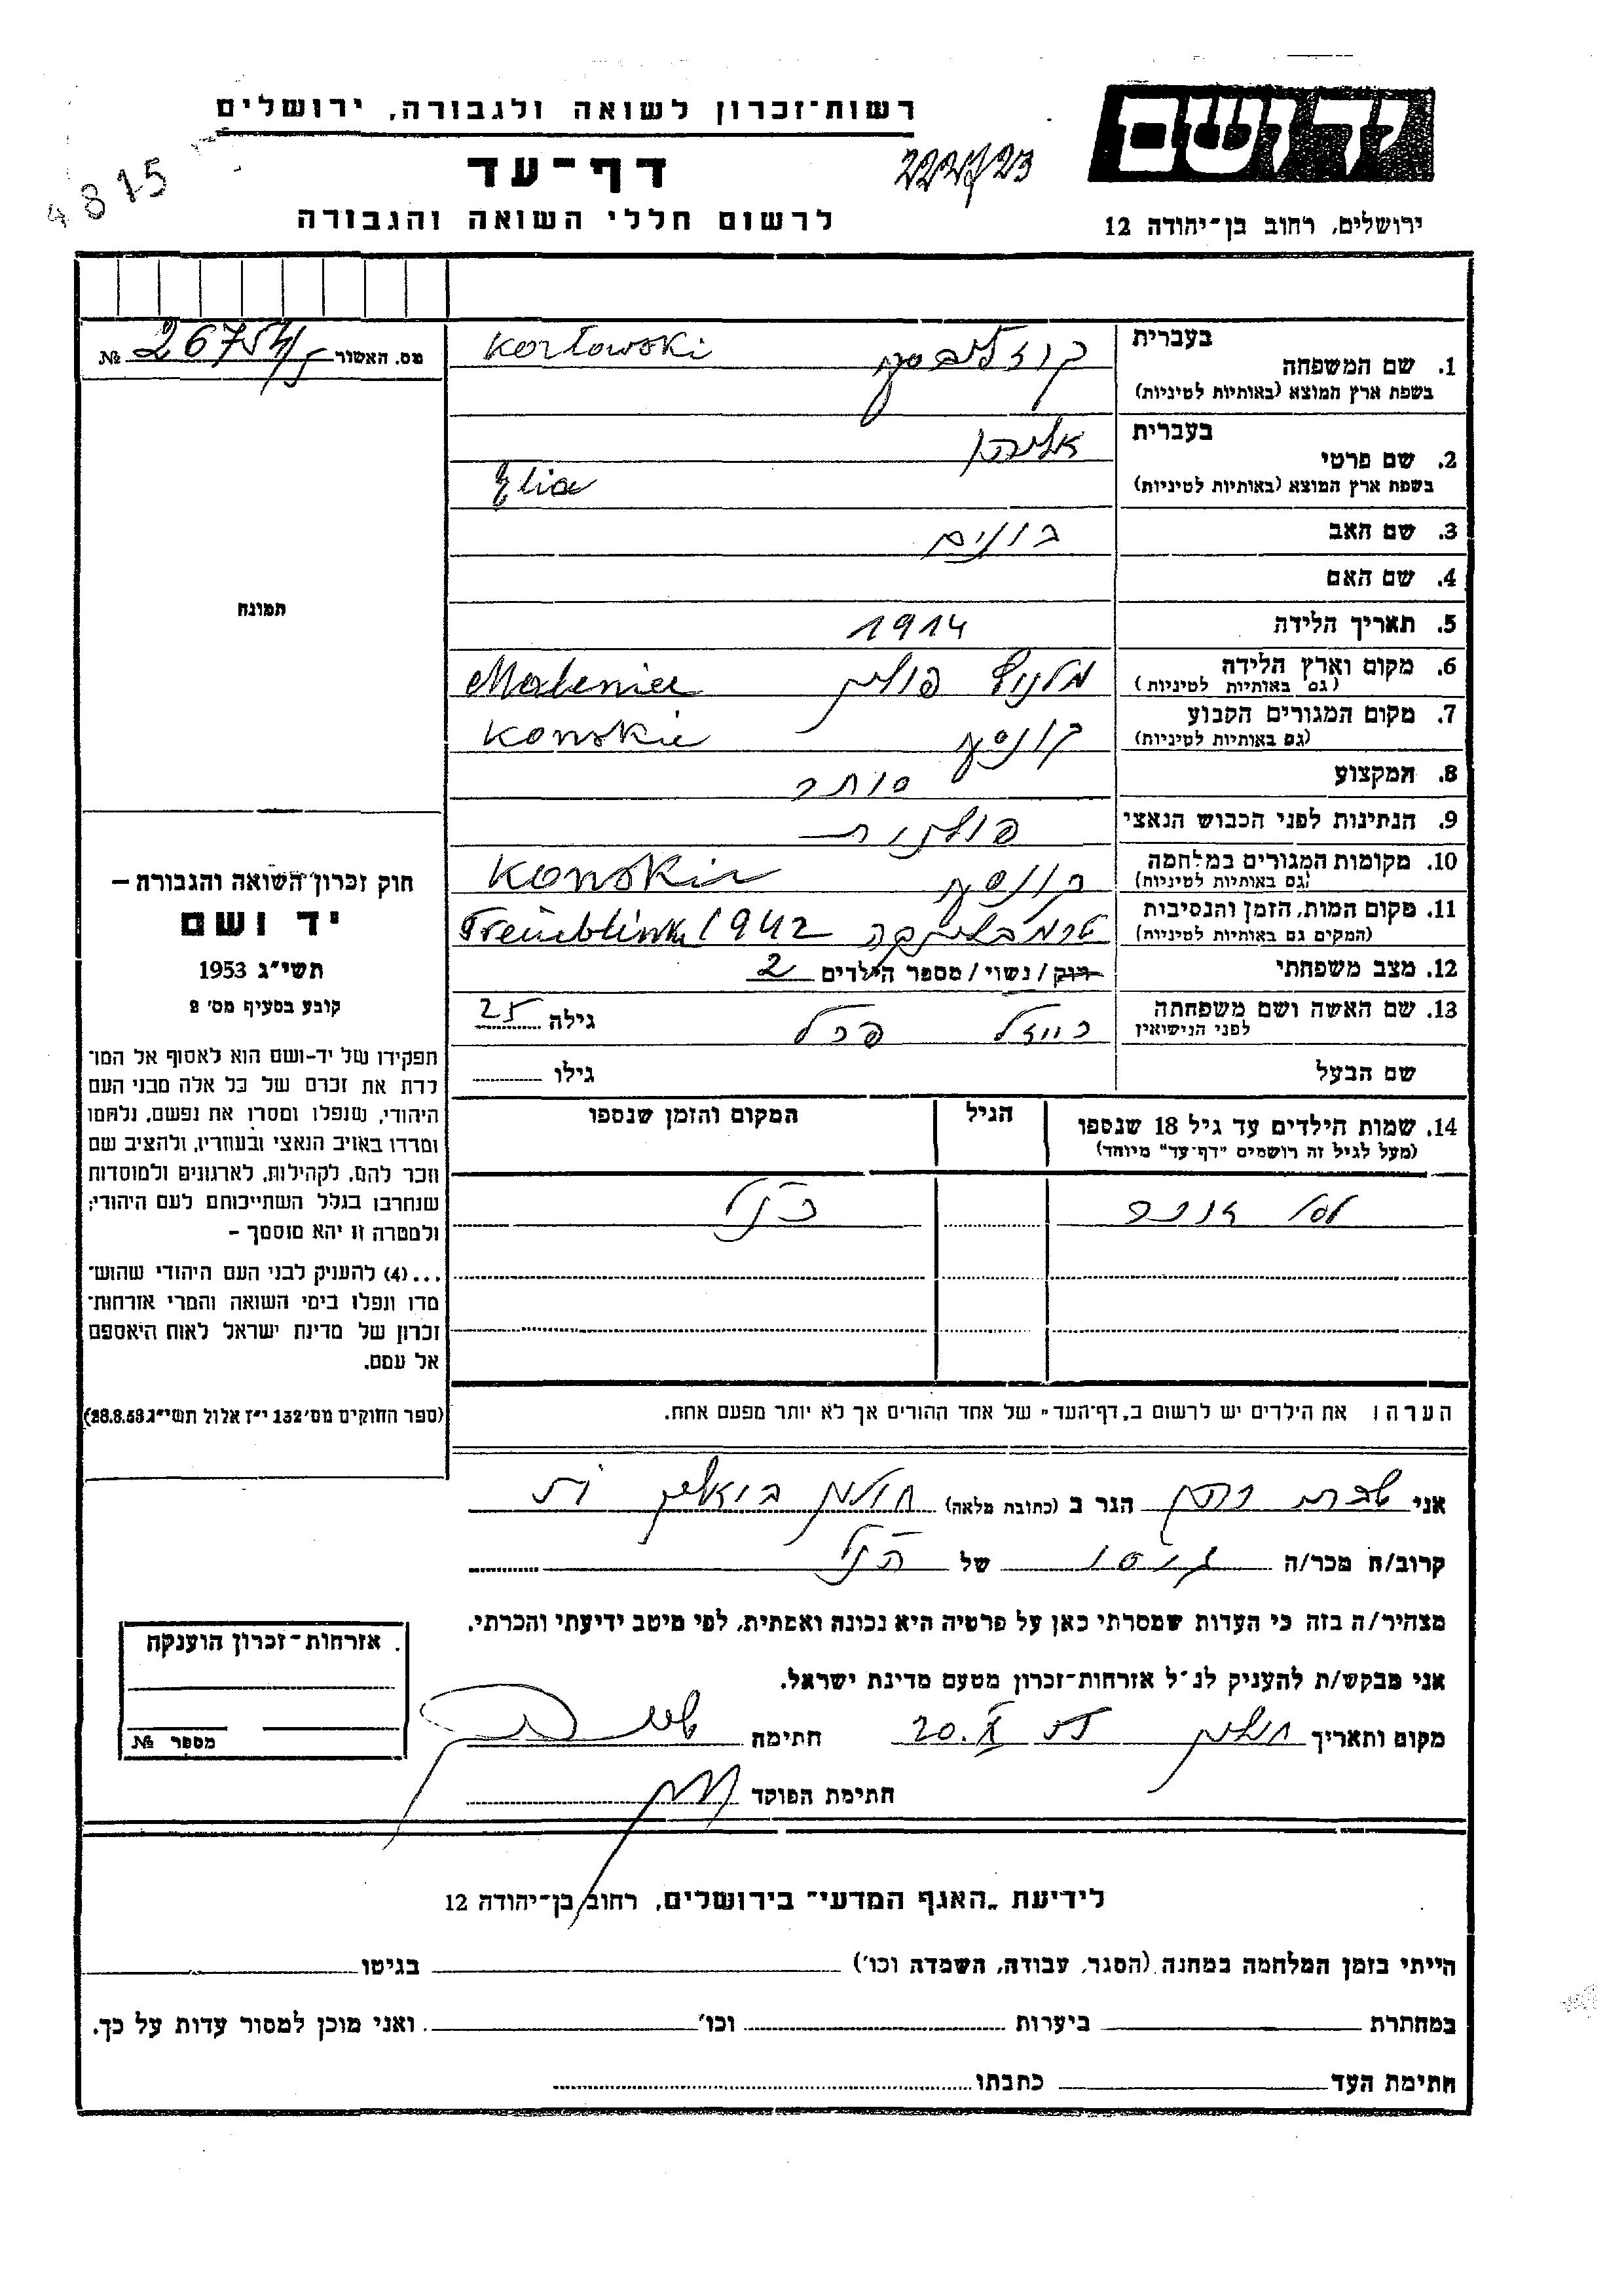 רשות־זכרון לשואה ולגבורה, ירושלים
יד ושם
דף־עד
4815
לרשום חללי השואה והגבורה
ירושלים, רחוב בן־יהודה 12
מס. האשור № 26754/
בעברית
1. שם המשפחה
בשפת ארץ המוצא (באותיות לטיניות)
Kozłowski
בעברית
אליהו
2. שם פרטי
בשפת ארץ המוצא (באותיות לטיניות)
Elia
3. שם האב בונים
4. שם האם
תמונה
5. תאריך הלידה 1914
6. מקום וארץ הלידה
(גם באותיות לטיניות)
פולין Maleniec
7. מקום המגורים הקבוע
(גם באותיות לטיניות)
Konskie
8. המקצוע סוחר
9. הנתינות לפני הכבוש הנאצי פולנית
10. מקומות המגורים במלחמה
(גם באותיות לטיניות)
Konskie
11. מקום המות, הזמן והנסיבות
(המקים גם באותיות לטיניות)
טרמבלינקה Tremblinka 1942
12. מצב משפחתי רוק / נשוי / מספר הילדים 2
13. שם האשה ושם משפחתה
לפני הנישואין
גילה 25
שם הבעל
גילו
14. שמות הילדים עד גיל 18 שנספו
(מעל לגיל זה רושמים "דף־עד" מיוחד)
הגיל
המקום והזמן שנספו
כנ"ל
הערה: את הילדים יש לרשום ב„דף־העד" של אחד ההורים אך לא יותר מפעם אחת.
חוק זכרון השואה והגבורה –
יד ושם
תשי״ג 1953
קובע בסעיף מס׳ 2
תפקידו של יד-ושם הוא לאסוף אל המו־
לדת את זכרם של כל אלה מבני העם
היהודי, שנפלו ומסרו את נפשם, נלחמו
ומרדו באויב הנאצי ובעוזריו, ולהציב שם
וזכר להם, לקהילות, לארגונים ולמוסדות
שנחרבו בגלל השתייכותם לעם היהודי;
ולמטרה זו יהא מוסמך –
...(4) להעניק לבני העם היהודי שהוש־
מדו ונפלו בימי השואה והמרי אזרחות־
זכרון של מדינת ישראל לאות היאספם
אל עמם.
(ספר החוקים מס׳ 132 י״ז אלול תשי״ג 28.8.53)
אני הגר ב (כתובת מלאה) חולון
קרוב/ה מכר/ה גיסו של הנ"ל
מצהיר/ה בזה כי העדות שמסרתי כאן על פרטיה היא נכונה ואמתית, לפי מיטב ידיעתי והכרתי.
אני מבקש/ת להעניק לנ״ל אזרחות־זכרון מטעם מדינת ישראל.
מקום ותאריך חולון 20. X חתימה
חתימת הפוקד
אזרחות־זכרון הוענקה
מספר №
לידיעת „האגף המדעי" בירושלים, רחוב בן־יהודה 12
הייתי בזמן המלחמה במחנה (הסגר, עבודה, השמדה וכו׳) בגיטו
במחתרת ביערות וכו׳ ואני מוכן למסור עדות על כך.
חתימת העד כתבתו